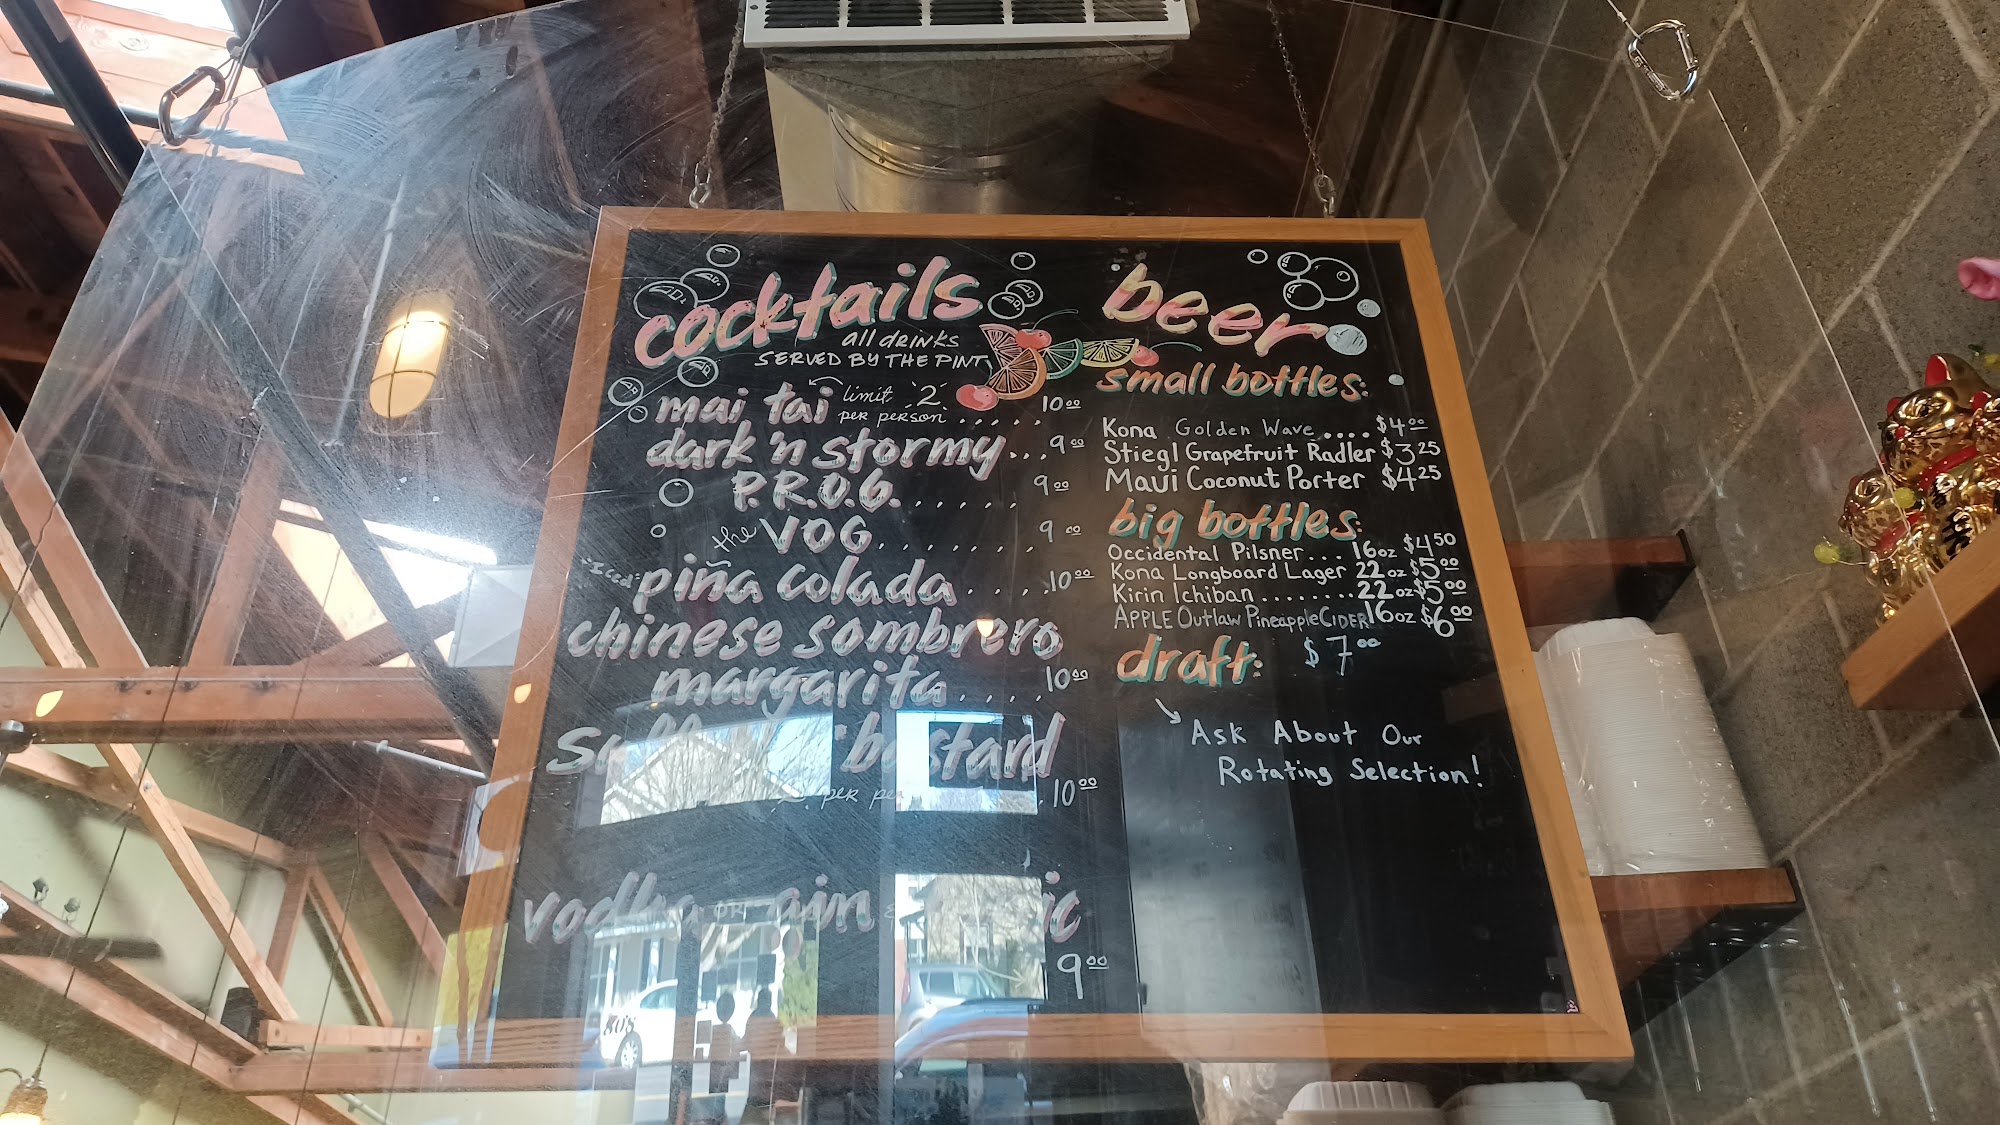 cocktails
all drinks
SERVED BY THE PINT
mai tai limit 2 per person ..... 10⁰⁰
dark 'n stormy ... 9⁰⁰
P.R.O.G. ..... 9⁰⁰
the VOG ....... 9⁰⁰
"Iced" piña colada .... 10⁰⁰
chinese sombrero
margarita .... 10⁰⁰
bastard
per 10⁰⁰
vodka OR
9⁰⁰
beer
small bottles:
Kona Golden Wave .... $4⁰⁰
Stiegl Grapefruit Radler $3²⁵
Maui Coconut Porter $4²⁵
big bottles:
Occidental Pilsner... 16oz $4⁵⁰
Kona Longboard Lager 22oz $5⁰⁰
Kirin Ichiban ........ 22oz $5⁰⁰
APPLE Outlaw Pineapple CIDER 16oz $6⁰⁰
draft: $7⁰⁰
Ask About Our
Rotating Selection!